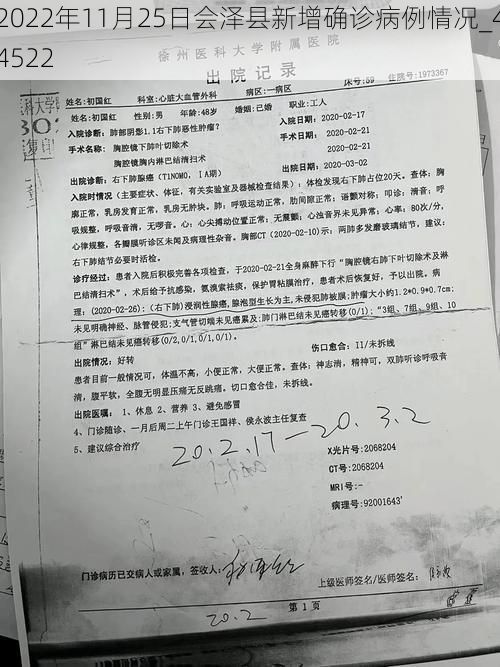 2022年11月25日会泽县新增确诊病例情况_4
4522
徐州医科大学附属医院
出院记录
床号:59
住院号:1973367
姓名:初国红 科室:心脏大血管外科 病区:一病区
性别:男 年龄:48岁 婚姻:已婚 职业:工人
入院诊断:肺部阴影1.1右下肺恶性肿瘤? 入院日期:2020-02-17
手术名称:胸腔镜下肺叶切除术 手术日期:2020-02-21
胸腔镜胸内淋巴结清扫术 2020-02-21
出院诊断:右下肺腺癌(T1N0M0,ⅠA期) 出院日期:2020-03-02
入院时情况(主要症状、体征,有关实验室及器械检查结果):体检发现右下肺占位20天。查体:胸
廓正常,乳房发育正常,乳房无肿块。肺:呼吸运动正常,肋间隙正常;语颤对称;叩诊:清音;呼
吸规整,呼吸音清,无啰音。心:心尖搏动位置正常;无震颤;心浊音界未见异常;心率:80次/分,
心律规整,各瓣膜听诊区未闻及病理性杂音。胸部CT(2020-02-10)示:两肺多发磨玻璃结节,建议:
右下肺结节必要时活检。
诊疗经过:患者入院后积极完善各项检查,于2020-02-21全身麻醉下行“胸腔镜右肺下叶切除术及淋
巴结清扫术”,术后给予抗感染,氨溴索祛痰,保护胃粘膜治疗,患者术后恢复好,予以出院。病
理:(2020-02-26):(右下肺)浸润性腺癌,腺泡型生长为主,未侵犯肺被膜;肿瘤大小约1.2*0.9*0.7cm;
未见明确神经、脉管侵犯;支气管切端未见癌累及;肺门淋巴结未见癌转移(0/1);“3组、7组、9组、10
组”淋巴结未见癌转移(0/2,0/1,0/1,0/1)。
出院情况:好转 伤口愈合:II/未拆线
患者目前一般情况可,体温不高,小便正常,大便正常。查体:神志清,精神可,双肺听诊呼吸音
清,腹平软,全腹无明显压痛无反跳痛。切口愈合佳,未拆线。
出院医嘱:1、休息 2、营养 3、避免感冒
4、门诊随诊、一月后周二上午门诊王国祥、侯永波主任复查
5、建议综合治疗
20.2.17—20.3.2
X光片号:2068204
CT号:2068204
MRI号:-
病理号:92001643'
门诊病历已交病人或家属,签收人:
上级医师签名/医师签名:
20.2
第1页